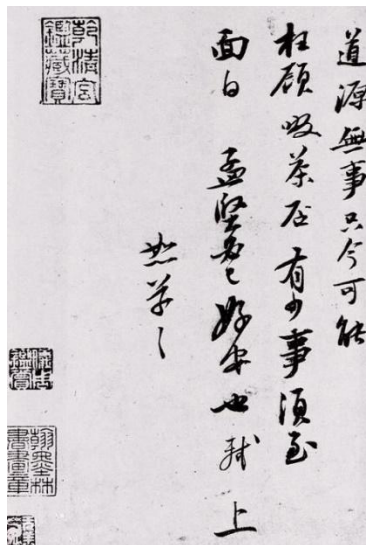 道源無事只今可能
枉顧啜茶否有少事須至
面白 孟堅必已好安也 軾上
恕草々
乾清宮
鑑藏寶
翰墨林
書畫章